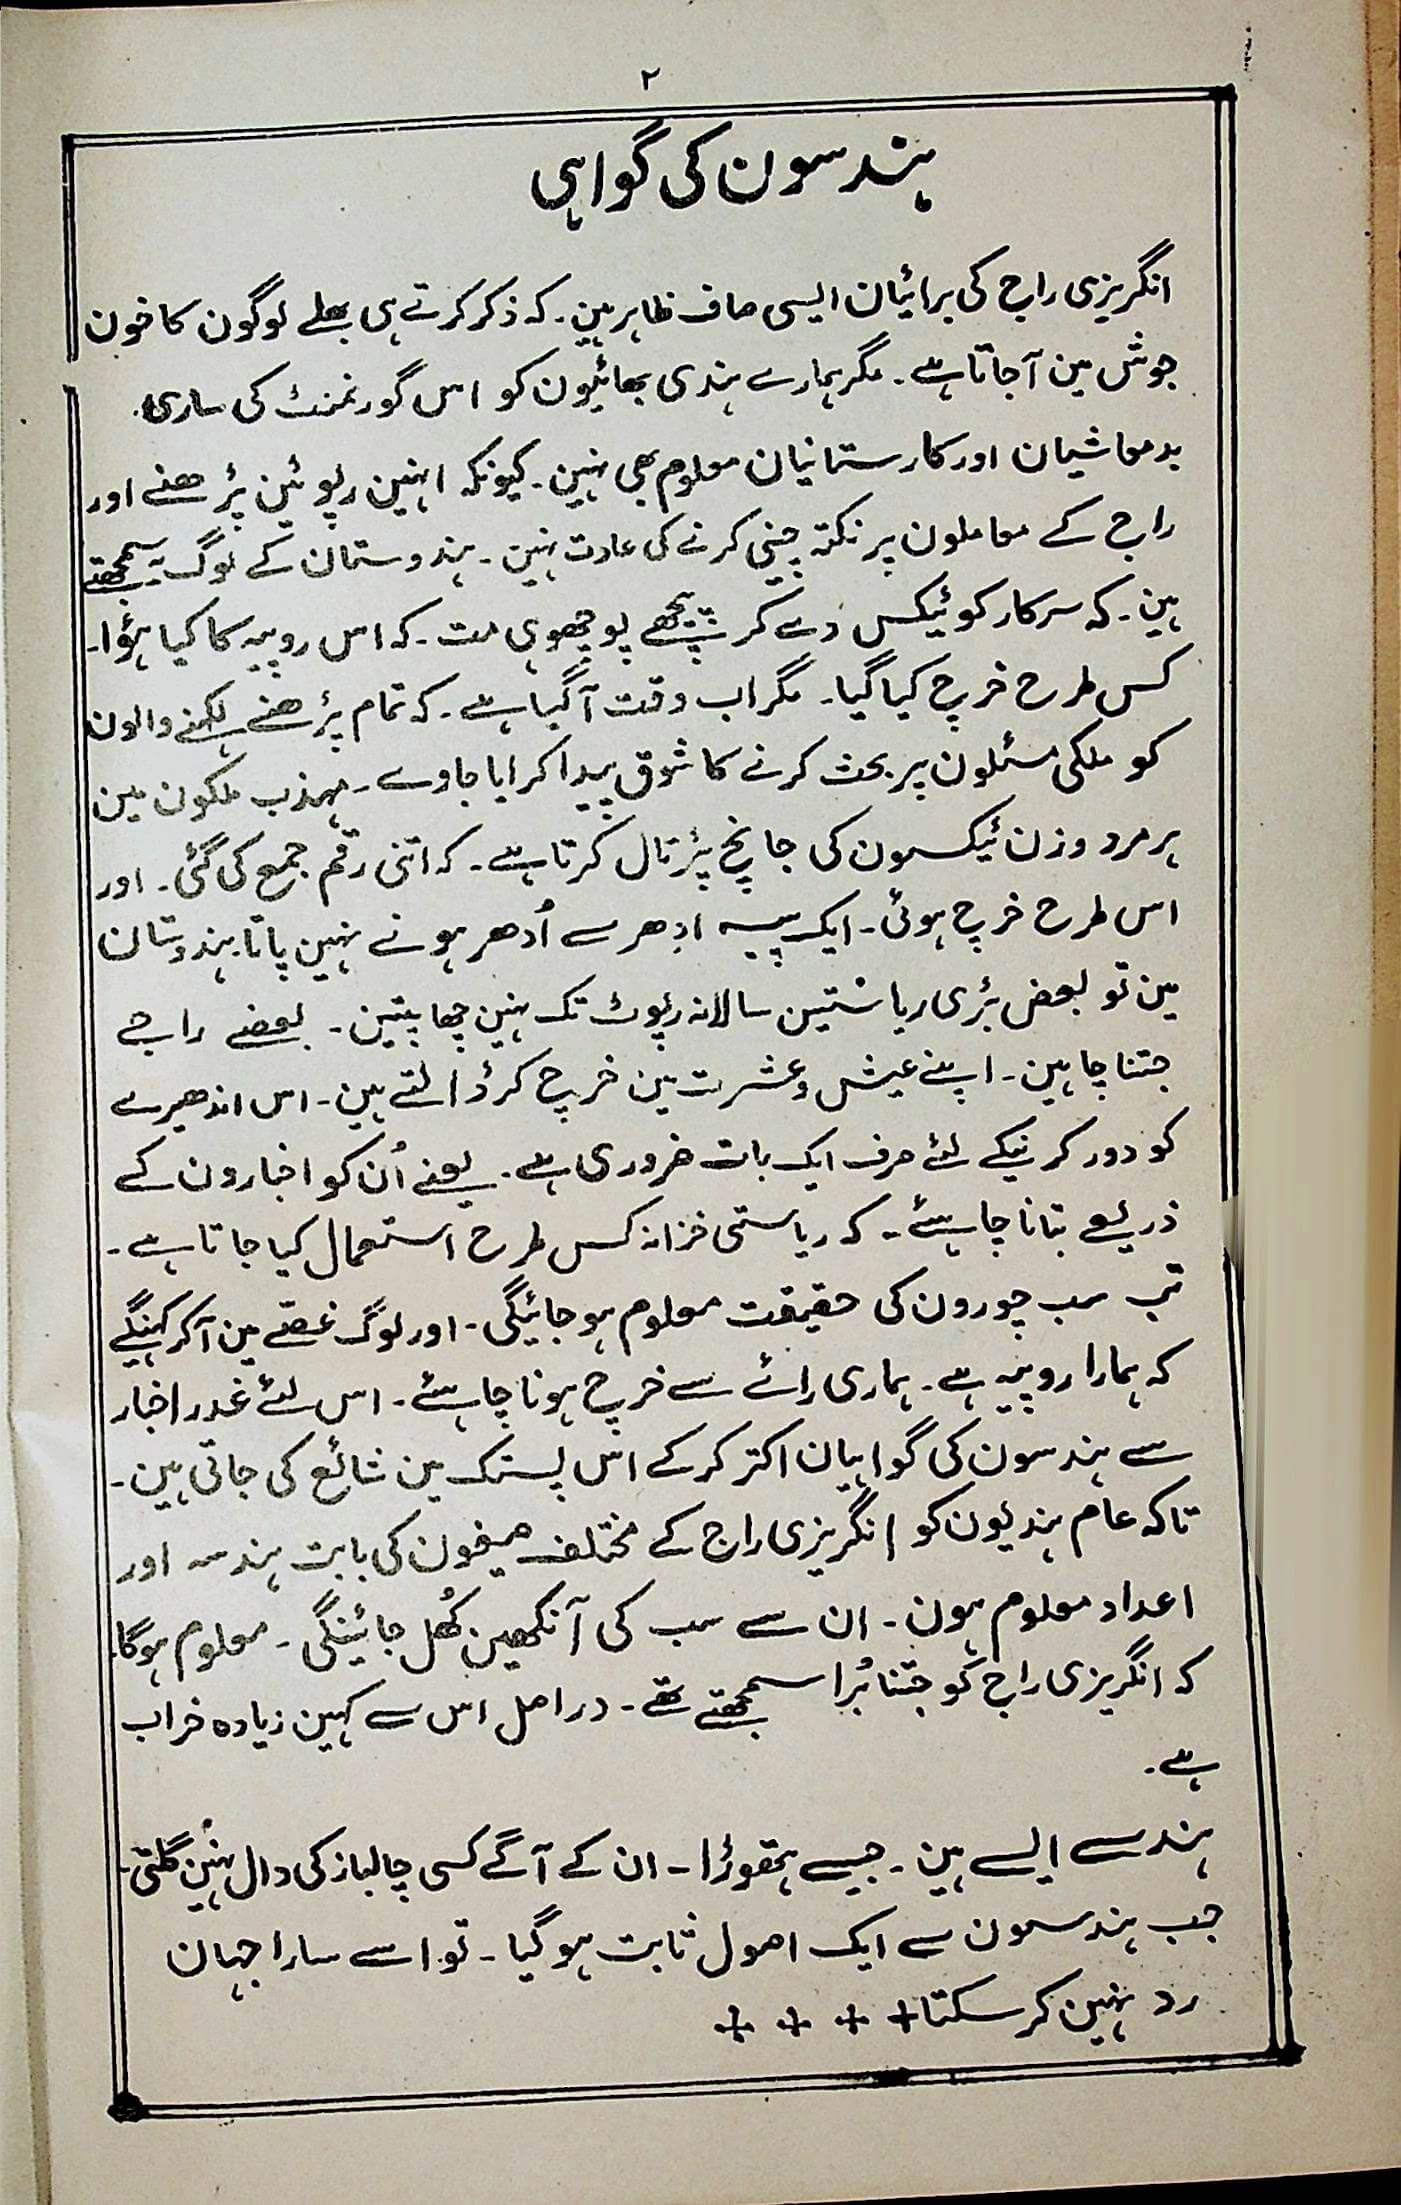 ۲
ہندسون کی گواہی
انگریزی راج کی برائیان ایسی صاف ظاہر ہین۔ کہ ذکر کرتے ہی بھلے لوگون کا خون
جوش مین آجاتا ہے۔ مگر ہمارے ہندی بھائیون کو اس گورنمنٹ کی ساری
بدمعاشیان اور کارستانیان معلوم بھی نہین۔ کیونکہ انہین رپوٹین پڑھنے اور
راج کے معاملون پر نکتہ چینی کرنے کی عادت نہین۔ ہندوستان کے لوگ یہ سمجھتے
ہین۔ کہ سرکار کو ٹیکس دے کر پیچھے پوچھو ہی مت۔ کہ اس روپیہ کا کیا ہؤا۔
کس طرح خرچ کیا گیا۔ مگر اب وقت آگیا ہے۔ کہ تمام پڑھنے لکھنے والون
کو ملکی مسئلون پر بحث کرنے کا شوق پیدا کرایا جاوے۔ مہذب ملکون مین
ہر مرد و زن ٹیکسون کی جانچ پڑتال کرتا ہے۔ کہ اتنی رقم جمع کی گئی۔ اور
اس طرح خرچ ہوئی۔ ایک پیسہ اِدھر سے اُدھر ہونے نہین پاتا۔ ہندوستان
مین تو بعض بڑی ریاستین سالانہ رپوٹ تک نہین چھاپتین۔ بعضے راجے
جتنا چاہین۔ اپنے عیش و عشرت مین خرچ کر ڈالتے ہین۔ اس اندھیرے
کو دور کرنیکے لئے صرف ایک بات ضروری ہے۔ یعنے اُن کو اخبارون کے
ذریعے بتانا چاہئے۔ کہ ریاستی خزانہ کس طرح استعمال کیا جاتا ہے۔
تب سب چورون کی حقیقت معلوم ہوجائیگی۔ اور لوگ غصّے مین آکر کہینگے
کہ ہمارا روپیہ ہے۔ ہماری رائے سے خرچ ہونا چاہئے۔ اس لئے غدر اخبار
سے ہندسون کی گواہیان اکتر کرکے اس پستک مین شائع کی جاتی ہین۔
تاکہ عام ہندیون کو انگریزی راج کے مختلف صیغون کی بابت ہندسہ اور
اعداد معلوم ہون۔ ان سے سب کی آنکھین کُھل جائینگی۔ معلوم ہوگا۔
کہ انگریزی راج کو جتنا بُرا سمجھتے تھے۔ دراصل اس سے کہین زیادہ خراب
ہے۔
ہندسے ایسے ہین۔ جیسے ہتھوڑا۔ ان کے آگے کسی چالباز کی دال نہین گلتی۔
جب ہندسون سے ایک اصول ثابت ہوگیا۔ تو اسے سارا جہان
رد نہین کرسکتا + + + +